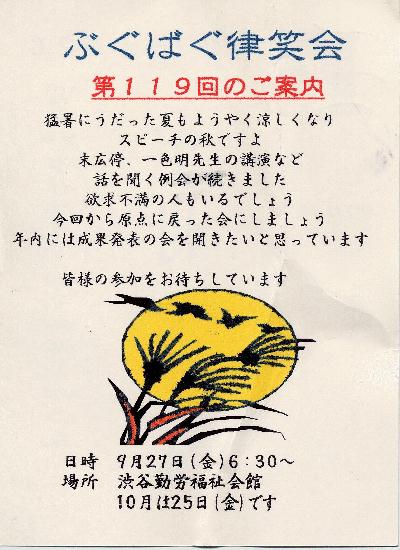 ぶぐばぐ律笑会
第119回のご案内
猛暑にうだった夏もようやく涼しくなり
スピーチの秋ですよ
末広停、一色明先生の講演など
話を聞く例会が続きました
欲求不満の人もいるでしょう
今回から原点に戻った会にしましょう
年内には成果発表の会を開きたいと思っています
皆様の参加をお待ちしています
日時 9月27日(金)6:30~
場所 渋谷勤労福祉会館
10月は25日(金)です